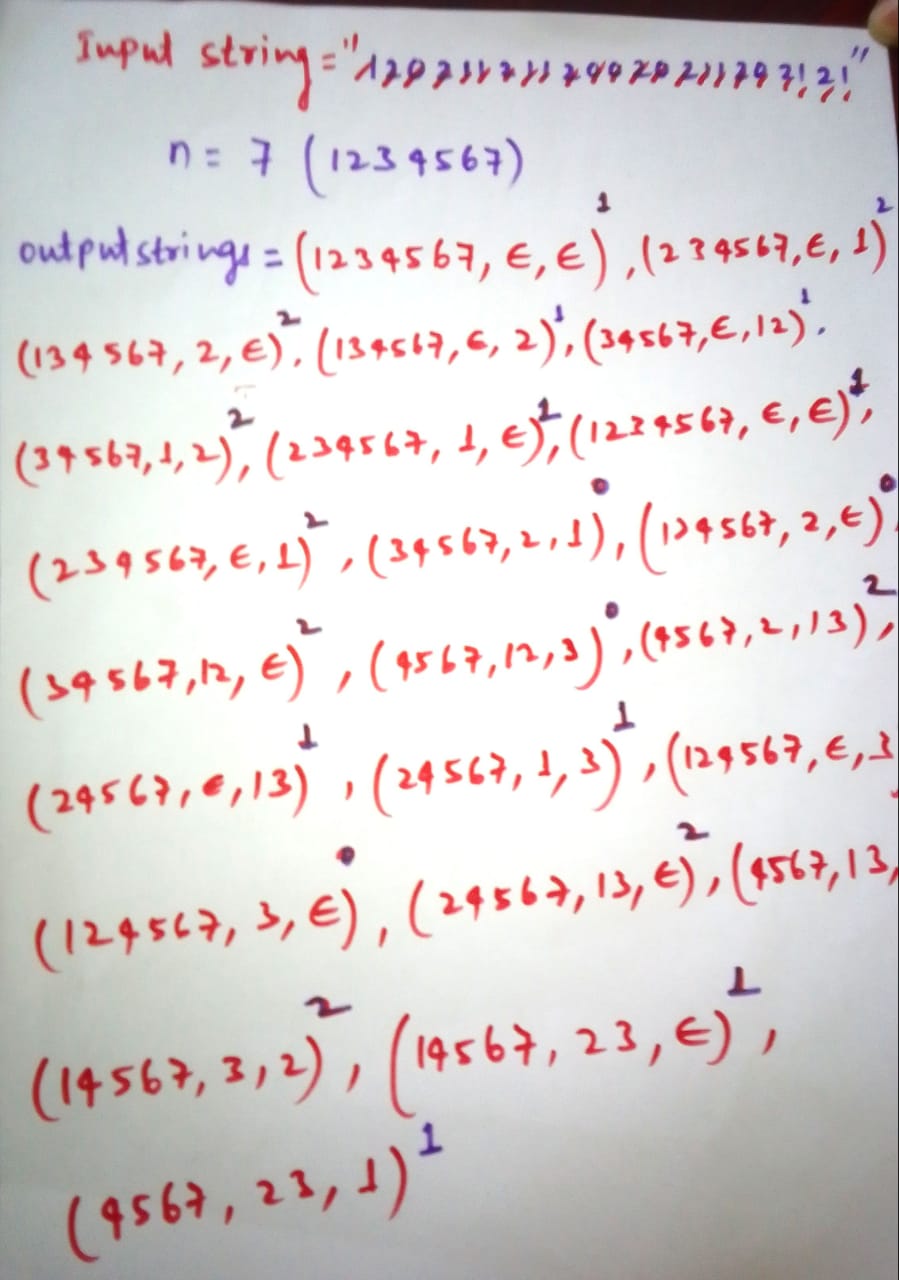 Input string = "
n = 7 (1234567)
outputstrings = (1234567, ε, ε)¹, (234567, ε, 1)²
(134567, 2, ε)², (134567, ε, 2)¹, (34567, ε, 12)¹.
(34567, 1, 2)², (234567, 1, ε)¹, (1234567, ε, ε)¹,
(234567, ε, 1)², (34567, 2, 1)⁰, (134567, 2, ε)⁰
(34567, 12, ε)², (4567, 12, 3)⁰, (4567, 2, 13)²,
(24567, ε, 13)¹, (24567, 1, 3)¹, (124567, ε, 3
(124567, 3, ε)⁰, (24567, 13, ε)², (4567, 13,
(14567, 3, 2)², (14567, 23, ε)¹,
(4567, 23, 1)¹